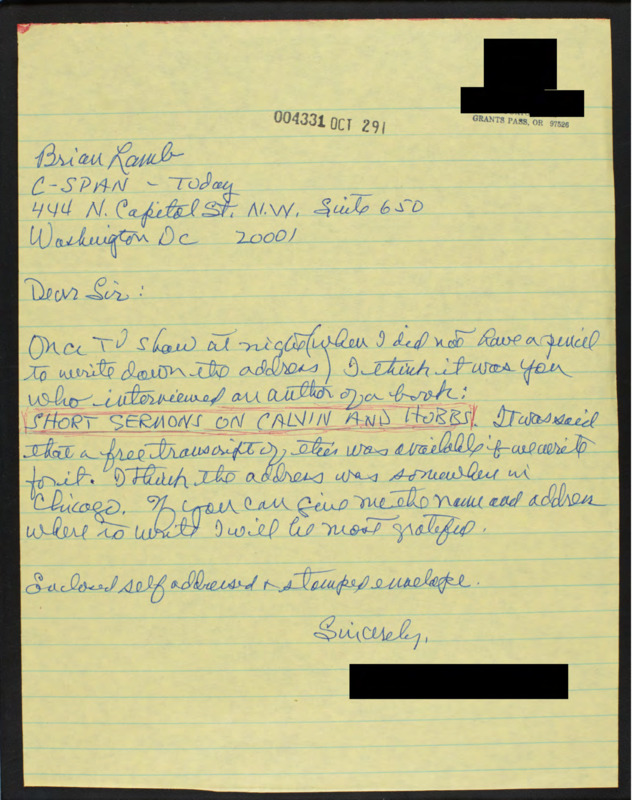 GRANTS PASS, OR 97526
004331 OCT 291
Brian Lamb
C-SPAN - Today
444 N. Capitol St. N.W. Suite 650
Washington DC 20001
Dear Sir:
On a TV show at night (when I did not have a pencil
to write down the address) I think it was you
who interviewed an author of a book:
SHORT SERMONS ON CALVIN AND HOBBS. It was said
that a free transcript of this was available if we write
for it. I think the address was somewhere in
Chicago. If you can give me the name and address
where to write I will be most grateful.
Enclosed self addressed & stamped envelope.
Sincerely,